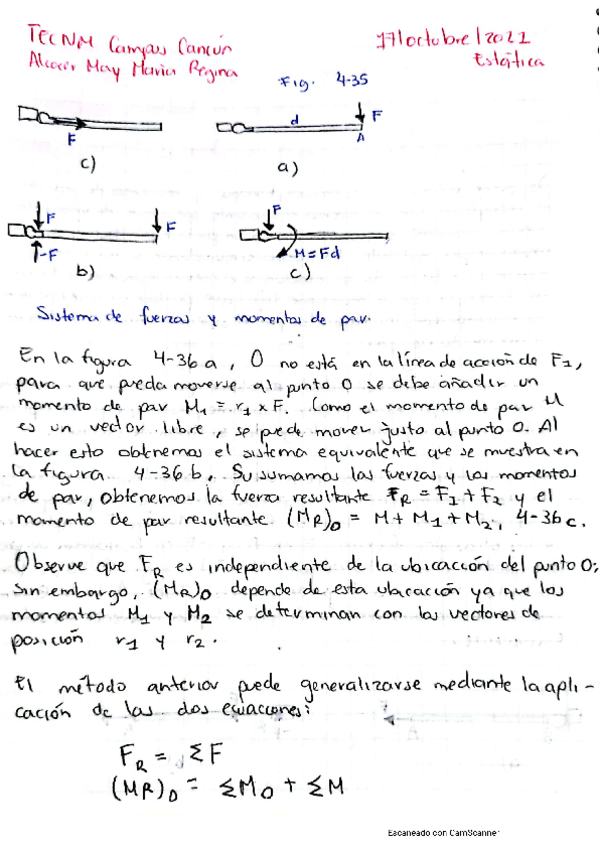 TECNM Campus Cancún
17/octubre/2021
Alcocer May Maria Regina
Estática
Fig. 4-35
F
c)
d
F
A
a)
F
F
-F
b)
F
M=Fd
c)
Sistema de fuerzas y momentos de par.
En la figura 4-36 a, O no está en la línea de acción de F1,
para que pueda moverse al punto O se debe añadir un
momento de par M1 = r1 x F. Como el momento de par M
es un vector libre, se puede mover justo al punto O. Al
hacer esto obtenemos el sistema equivalente que se muestra en
la figura 4-36 b. Su sumamos las fuerzas y los momentos
de par, obtenemos la fuerza resultante FR = F1 + F2 y el
momento de par resultante (MR)O = M + M1 + M2, 4-36c.
Observe que FR es independiente de la ubicacción del punto O;
sin embargo, (MR)O depende de esta ubacacción ya que los
momentos M1 y M2 se determinan con los vectores de
posición r1 y r2.
El método anterior puede generalizarse mediante la apli-
cación de las dos ecuaciones:
FR = ΣF
(MR)O = ΣMO + ΣM
Escaneado con CamScanner